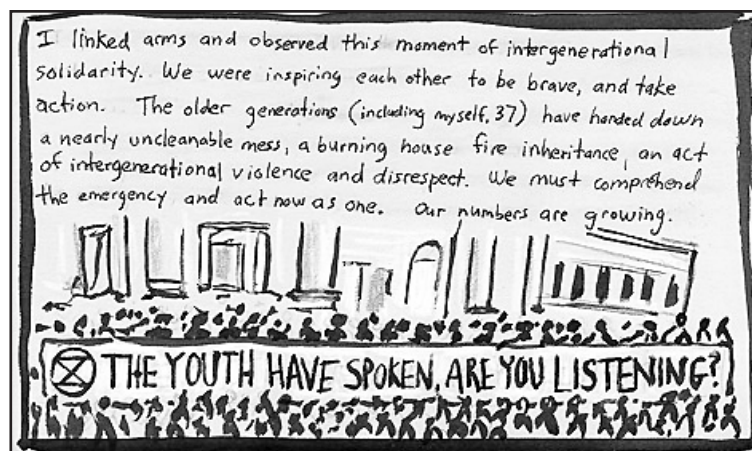 I linked arms and observed this moment of intergenerational
solidarity. We were inspiring each other to be brave, and take
action. The older generations (including myself, 37) have handed down
a nearly uncleanable mess, a burning house fire inheritance, an act
of intergenerational violence and disrespect. We must comprehend
the emergency and act now as one. Our numbers are growing.
THE YOUTH HAVE SPOKEN, ARE YOU LISTENING?